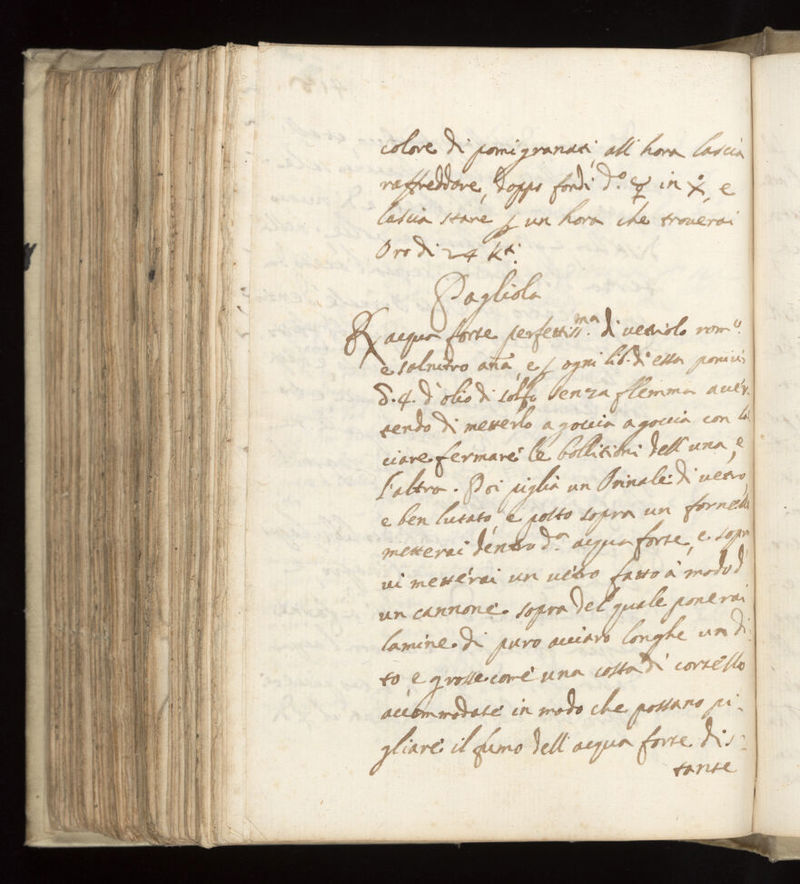 colore di pomigranati, all'hora lascia
raffreddare, doppo fondi d.º ☿ in , e
lascia stare un hora che troverai
Oro di 24 K.ti
Pagliola
℞ acqua forte perfettiss.ma di vetriolo rom.º
e salnitro anã, e ogni lib. di essa ponivi
4. d'olio di solfo senza flemma aver
tendo di metterlo a goccia a goccia con la
ciare fermare le bollitioni dell'una, e
l'altra. Poi piglia un Orinale di vetro,
e ben lutato, e posto sopra un fornello
metterai dentro d.ª acqua forte, e sopra
vi metterai un vetro fatto à modo d
un cannone sopra del quale ponerai
lamine di puro acciaro longhe un di
to e grosse come una costa di cortello
accommodate in modo che possano pi-
gliare il fumo dell'acqua forte dis:
tante